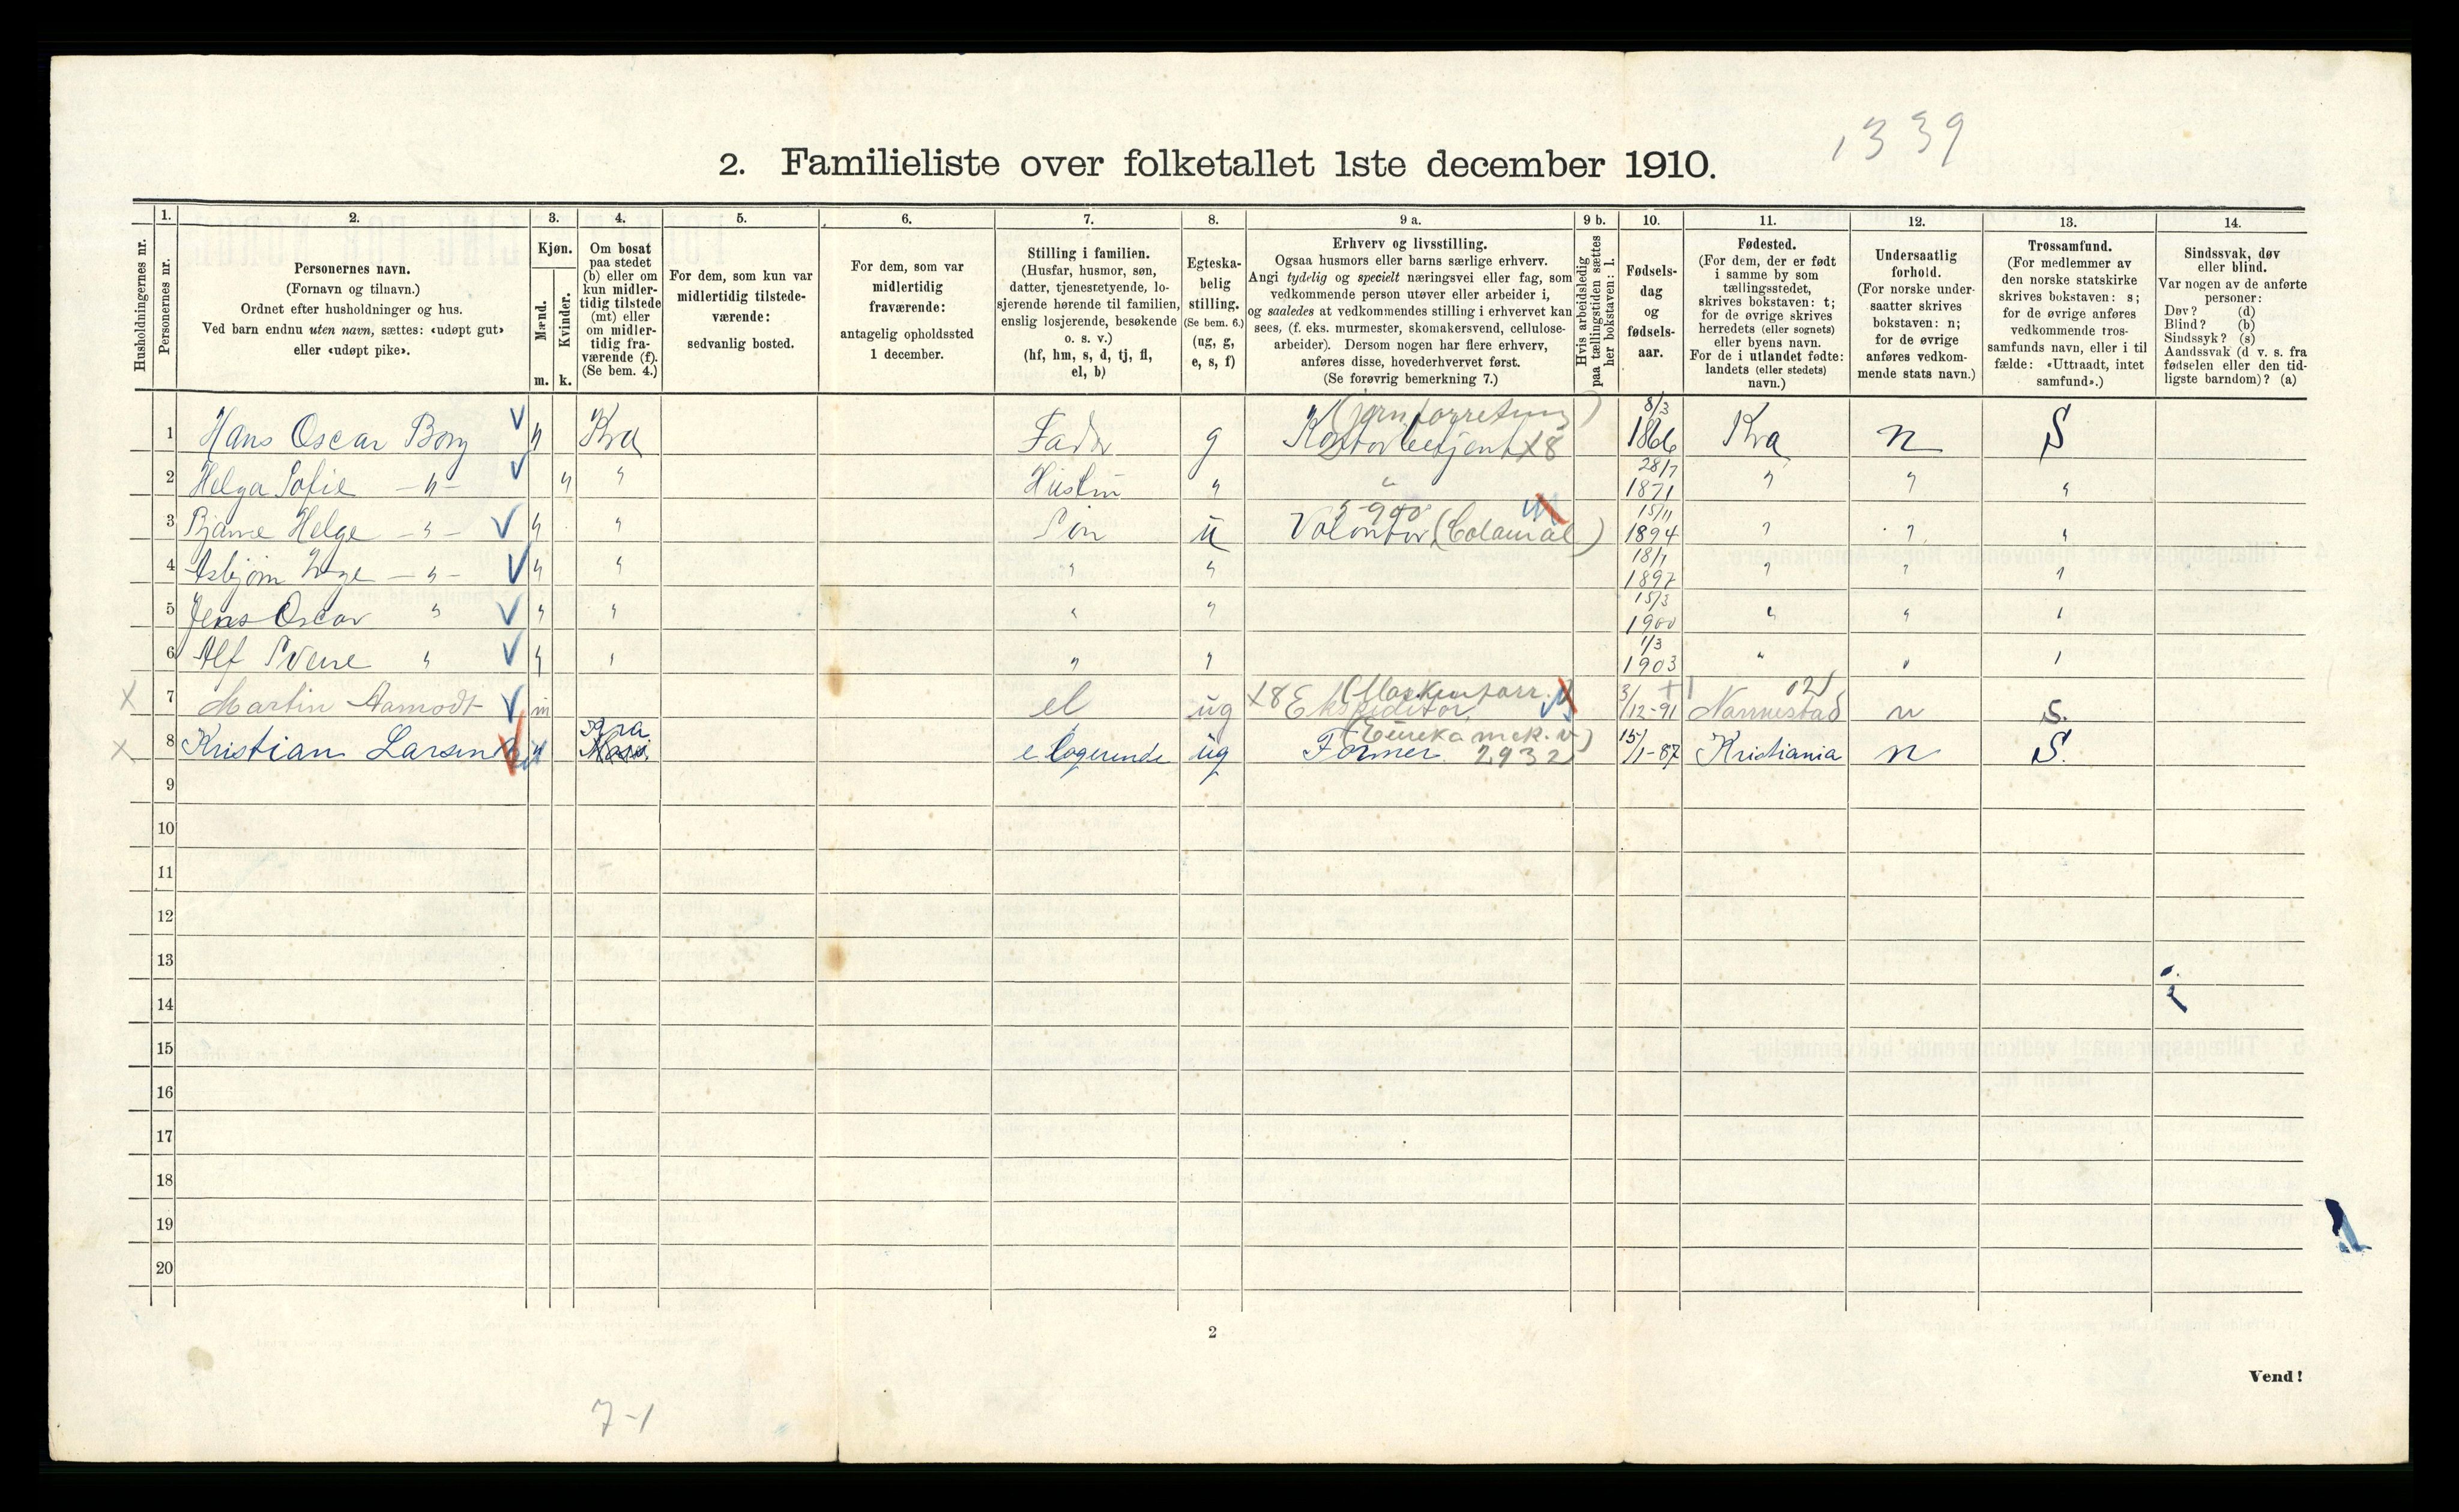 1339
2. Familieliste over folketallet 1ste december 1910.
Husholdningernes nr.
1.
Personernes nr.
2.
Personernes navn.
(Fornavn og tilnavn.)
Ordnet efter husholdninger og hus.
Ved barn endnu uten navn, sættes: «udøpt gut»
eller «udøpt pike».
3.
Kjøn.
Mænd.
Kvinder.
m. k.
4.
Om bosat
paa stedet
(b) eller om
kun midler-
tidig tilstede
(mt) eller
om midler-
tidig fra-
værende (f).
(Se bem. 4.)
5.
For dem, som kun var
midlertidig tilstede-
værende:
sedvanlig bosted.
6.
For dem, som var
midlertidig
fraværende:
antagelig opholdssted
1 december.
7.
Stilling i familien.
(Husfar, husmor, søn,
datter, tjenestetyende, lo-
sjerende hørende til familien,
enslig losjerende, besøkende
o. s. v.)
(hf, hm, s, d, tj, fl,
el, b)
8.
Egteska-
belig
stilling.
(Se bem. 6.)
(ug, g,
e, s, f)
9 a.
Erhverv og livsstilling.
Ogsaa husmors eller barns særlige erhverv.
Angi tydelig og specielt næringsvei eller fag, som
vedkommende person utøver eller arbeider i,
og saaledes at vedkommendes stilling i erhvervet kan
sees, (f. eks. murmester, skomakersvend, cellulose-
arbeider). Dersom nogen har flere erhverv,
anføres disse, hovederhvervet først.
(Se forøvrig bemerkning 7.)
9 b.
Hvis arbeidsledig
paa tællingstiden sættes
her bokstaven: l.
10.
Fødsels-
dag
og
fødsels-
aar.
11.
Fødested.
(For dem, der er født
i samme by som
tællingsstedet,
skrives bokstaven: t;
for de øvrige skrives
herredets (eller sognets)
eller byens navn.
For de i utlandet fødte:
landets (eller stedets)
navn.)
12.
Undersaatlig
forhold.
(For norske under-
saatter skrives
bokstaven: n;
for de øvrige
anføres vedkom-
mende stats navn.)
13.
Trossamfund.
(For medlemmer av
den norske statskirke
skrives bokstaven: s;
for de øvrige anføres
vedkommende tros-
samfunds navn, eller i til
fælde: «Uttraadt, intet
samfund».)
14.
Sindssvak, døv
eller blind.
Var nogen av de anførte
personer:
Døv? (d)
Blind? (b)
Sindssyk? (s)
Aandssvak (d v. s. fra
fødselen eller den tid-
ligste barndom)? (a)
1 Hans Oscar Borg Kra Fader g (jernforretning) Kontorbetjent X8 8/3 1866 Kra n S
2 Helga Sofie — " — " " Hustru " " 28/7 1871 " " "
3 Bjarne Helge — " — " " Søn u 5-900 Volontør (Colonial) 15/11 1894 " " "
4 Asbjørn — " — " " " " 18/1 1897 " " "
5 Jens Oscar " " " " " 15/3 1900 " " "
6 Alf Sverre " " " " " 1/3 1903 " " "
X 7 Martin Aamodt m el ug X8 Ekspeditør 3/12-91 Nannestad n S.
X 8 Kristian Larsen Kra e logerende ug (Eureka mek. v) Former 2932 15/1-87 Kristiania n S.
9
10
11
12
13
14
15
16
17
18
19
20
2
Vend!
7-1